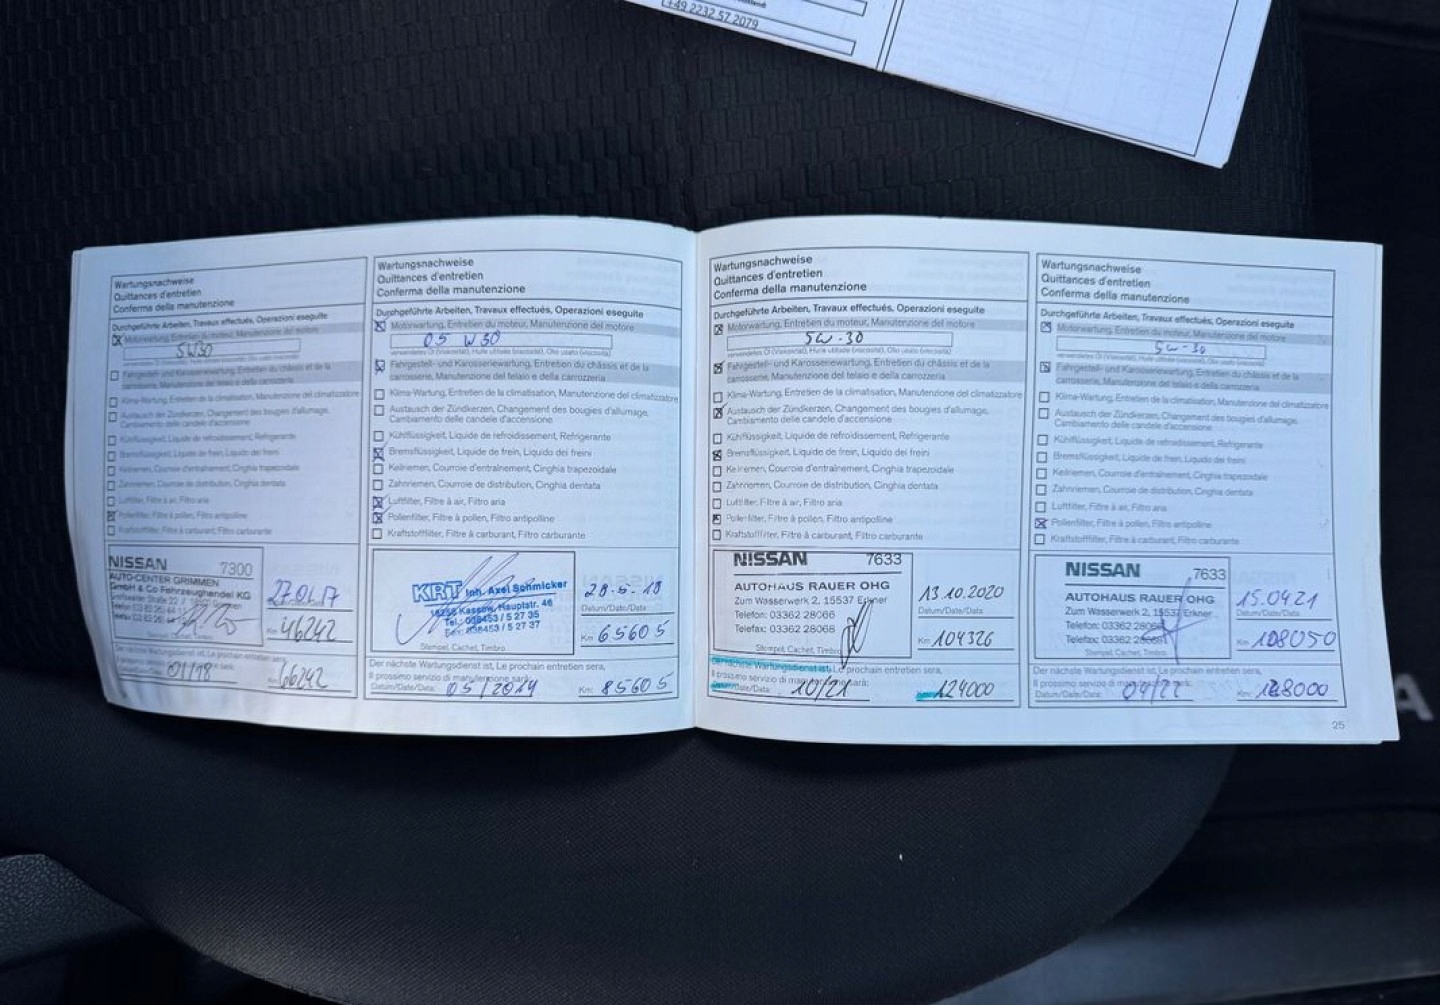 +49 2232 57 2079
Wartungsnachweise
Quittances d'entretien
Conferma della manutenzione
Durchgeführte Arbeiten, Travaux effectués, Operazioni eseguite
Motorwartung, Entretien du moteur, Manutenzione del motore
5W30
Fahrgestell- und Karosseriewartung, Entretien du châssis et de la
carrosserie, Manutenzione del telaio e della carrozzeria
Klima-Wartung, Entretien de la climatisation, Manutenzione del climatizzatore
Austausch der Zündkerzen, Changement des bougies d'allumage,
Cambiamento delle candele d'accensione
Kühlflüssigkeit, Liquide de refroidissement, Refrigerante
Bremsflüssigkeit, Liquide de frein, Liquido dei freini
Keilriemen, Courroie d'entraînement, Cinghia trapezoidale
Zahnriemen, Courroie de distribution, Cinghia dentata
Luftfilter, Filtre à air, Filtro aria
Pollenfilter, Filtre à pollen, Filtro antipolline
Kraftstofffilter, Filtre à carburant, Filtro carburante
NISSAN 7300
AUTO-CENTER GRIMMEN
GmbH & Co Fahrzeughandel KG
27.01.17
Km 46242
Der nächste Wartungsdienst ist, Le prochain entretien sera,
01/18
Km: 66242
Wartungsnachweise
Quittances d'entretien
Conferma della manutenzione
Durchgeführte Arbeiten, Travaux effectués, Operazioni eseguite
Motorwartung, Entretien du moteur, Manutenzione del motore
05 W30
verwendetes Öl (Viskosität), Huile utilisée (viscosité), Olio usato (viscosità)
Fahrgestell- und Karosseriewartung, Entretien du châssis et de la
carrosserie, Manutenzione del telaio e della carrozzeria
Klima-Wartung, Entretien de la climatisation, Manutenzione del climatizzatore
Austausch der Zündkerzen, Changement des bougies d'allumage,
Cambiamento delle candele d'accensione
Kühlflüssigkeit, Liquide de refroidissement, Refrigerante
Bremsflüssigkeit, Liquide de frein, Liquido dei freini
Keilriemen, Courroie d'entraînement, Cinghia trapezoidale
Zahnriemen, Courroie de distribution, Cinghia dentata
Luftfilter, Filtre à air, Filtro aria
Pollenfilter, Filtre à pollen, Filtro antipolline
Kraftstofffilter, Filtre à carburant, Filtro carburante
KRT Inh. Axel Schmicker
18258 Kassow, Hauptstr. 46
Tel.: 038453 / 5 27 35
Fax: 038453 / 5 27 37
Stempel, Cachet, Timbro
28.5.18
Datum/Date/Data
Km 65605
Der nächste Wartungsdienst ist, Le prochain entretien sera,
Il prossimo servizio di manutenzione sarà:
Datum/Date/Data: 05/2019
Km: 85605
Wartungsnachweise
Quittances d'entretien
Conferma della manutenzione
Durchgeführte Arbeiten, Travaux effectués, Operazioni eseguite
Motorwartung, Entretien du moteur, Manutenzione del motore
5W-30
verwendetes Öl (Viskosität), Huile utilisée (viscosité), Olio usato (viscosità)
Fahrgestell- und Karosseriewartung, Entretien du châssis et de la
carrosserie, Manutenzione del telaio e della carrozzeria
Klima-Wartung, Entretien de la climatisation, Manutenzione del climatizzatore
Austausch der Zündkerzen, Changement des bougies d'allumage,
Cambiamento delle candele d'accensione
Kühlflüssigkeit, Liquide de refroidissement, Refrigerante
Bremsflüssigkeit, Liquide de frein, Liquido dei freini
Keilriemen, Courroie d'entraînement, Cinghia trapezoidale
Zahnriemen, Courroie de distribution, Cinghia dentata
Luftfilter, Filtre à air, Filtro aria
Pollenfilter, Filtre à pollen, Filtro antipolline
Kraftstofffilter, Filtre à carburant, Filtro carburante
NISSAN 7633
AUTOHAUS RAUER OHG
Zum Wasserwerk 2, 15537 Erkner
Telefon: 03362 28066
Telefax: 03362 28068
Stempel, Cachet, Timbro
13.10.2020
Datum/Date/Data
Km 104326
Der nächste Wartungsdienst ist, Le prochain entretien sera,
Il prossimo servizio di manutenzione sarà:
Datum/Date/Data: 10/21
124000
Wartungsnachweise
Quittances d'entretien
Conferma della manutenzione
Durchgeführte Arbeiten, Travaux effectués, Operazioni eseguite
Motorwartung, Entretien du moteur, Manutenzione del motore
5W-30
verwendetes Öl (Viskosität), Huile utilisée (viscosité), Olio usato (viscosità)
Fahrgestell- und Karosseriewartung, Entretien du châssis et de la
carrosserie, Manutenzione del telaio e della carrozzeria
Klima-Wartung, Entretien de la climatisation, Manutenzione del climatizzatore
Austausch der Zündkerzen, Changement des bougies d'allumage,
Cambiamento delle candele d'accensione
Kühlflüssigkeit, Liquide de refroidissement, Refrigerante
Bremsflüssigkeit, Liquide de frein, Liquido dei freini
Keilriemen, Courroie d'entraînement, Cinghia trapezoidale
Zahnriemen, Courroie de distribution, Cinghia dentata
Luftfilter, Filtre à air, Filtro aria
Pollenfilter, Filtre à pollen, Filtro antipolline
Kraftstofffilter, Filtre à carburant, Filtro carburante
NISSAN 7633
AUTOHAUS RAUER OHG
Zum Wasserwerk 2, 15537 Erkner
Telefon: 03362 28066
Telefax: 03362
Stempel, Cachet, Timbro
15.04.21
Datum/Date/Data
Km 108050
Der nächste Wartungsdienst ist, Le prochain entretien sera,
Il prossimo servizio di manutenzione sarà:
Datum/Date/Data: 04/22
Km: 128000
25
A